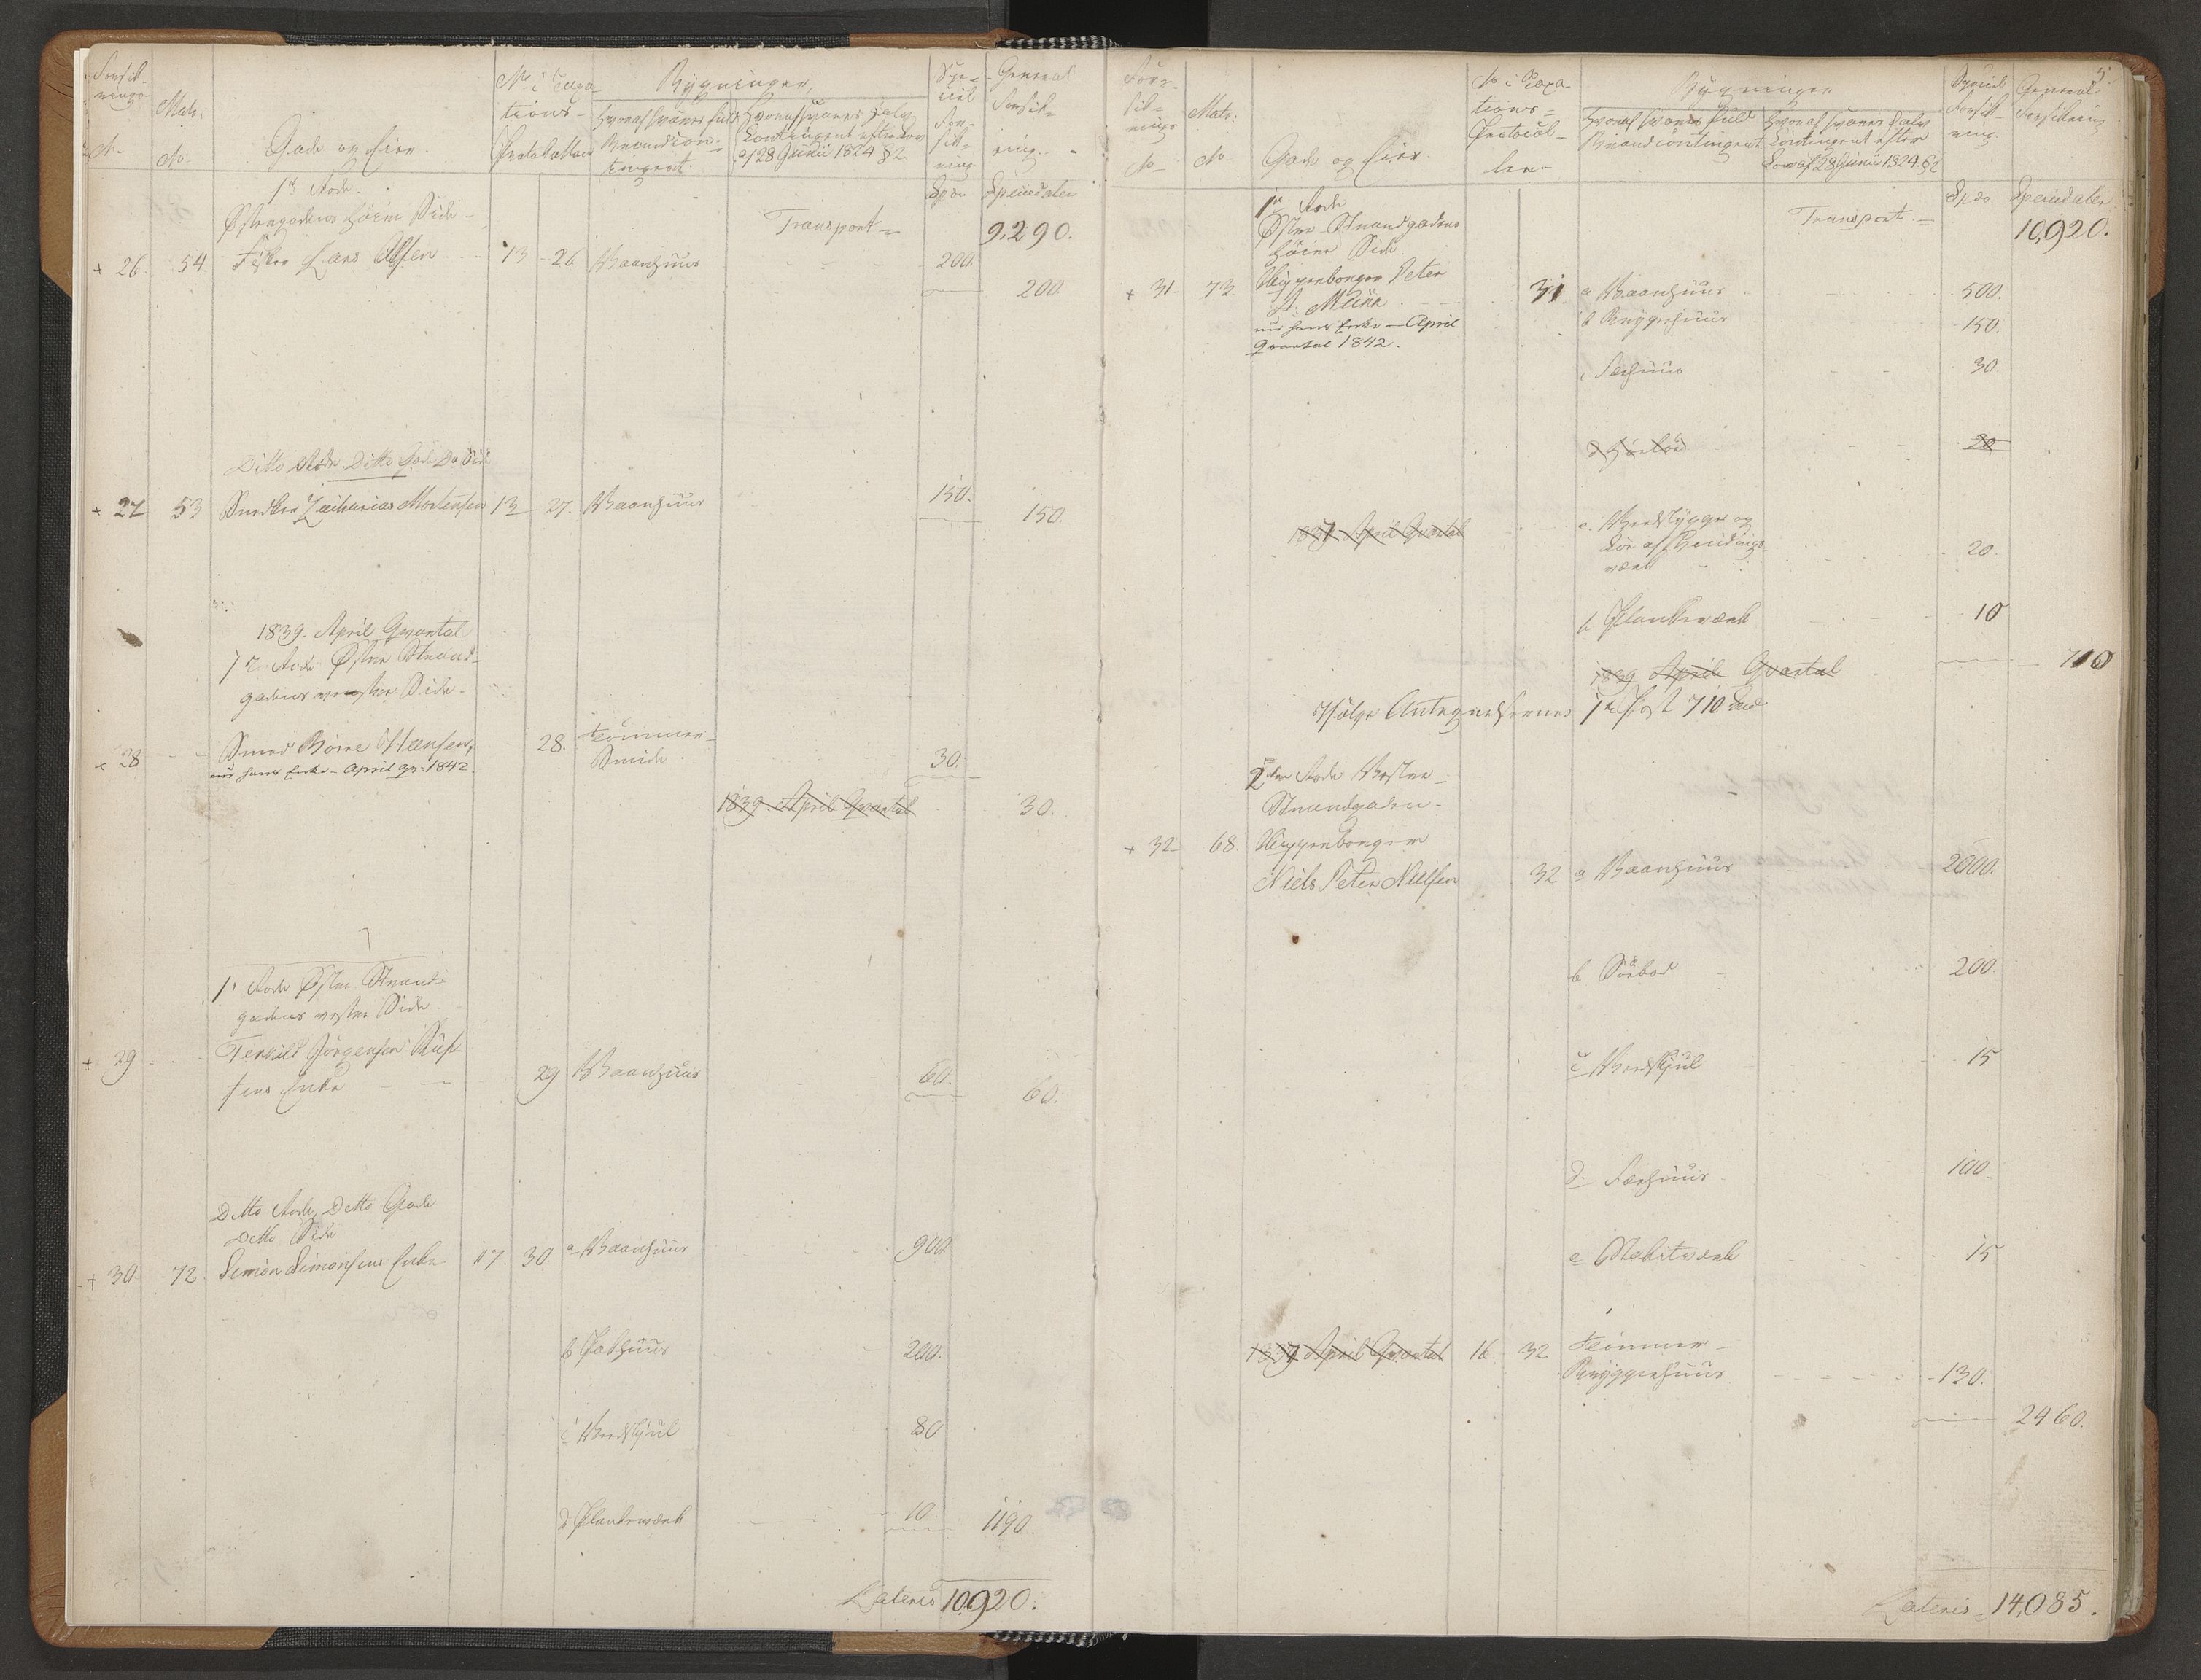 Forsik-
rings
No
Matr:
No
Gade og Eier.
No i Taxa-
tions-
Protokollen
Bygninger,
hvoraf svares fuld
Brandcon-
tingent.
hvoraf svares halv
Contingent efter Lov
af 28 Junii 1824 § 2
Spe-
ciel
For-
sik-
ring
General
Forsik-
ring.
1e Rode
Østergadens høire Side
Transport
Spd.
Speciedaler
9,290.
+ 26. 54. Fisker Lars Olsen 13 26 Vaanhuus 200.
200.
Ditto Rode Ditto Gade Do Side
+ 27 53 Snedker Zacharias Mortensen 13 27. Vaanhuus 150.
150.
1839. April Qvartal
1e Rode Østre Strand-
gadens venstre Side
+ 28 Smed Börre Steensen, 28. Tömmer-
Smide. 30.
nu hans Enke - April Qv. 1842.
1839. April Qvartal
30.
1e Rode Østre Strand-
gadens vestre Side
+ 29 Terkild Jörgensen
sens Enke 29 Vaanhuus 60.
60.
Ditto Rode, Ditto Gade
Ditto Side
+ 30 72. Simon Simonsens Enke 17. 30. a Vaanhuus 900
b Pakhuus 200.
c Vedskjul 80
d Plankeværk 10
1190.
Lateris 10,920.
5
For-
sik-
rings
No
Matr:
No
Gade og Eier.
No i Taxa-
tions-
Protocol-
len
Bygninger
hvoraf svares fuld
Brandcontingent
hvoraf svares halv
Contingent efter
Lov af 28 Junii 1824 § 2
Speciel
Forsik-
ring.
General
Forsikring
1e Rode
Østre Strandgadens
höire Side
Transport
Spd.
Speciedaler
10,920.
+ 31 73. Skipperborger Peter
A. Münk 31 a Vaanhuus 500.
nu hans Enke - April
Qvartal 1842.
b Bryggehuus 150.
c Fæehuus 30
d Söebod 20
1839 April Qvartal
e. Vedskygge og
Lör af Bindings-
værk 20
f Plankeværk 10
1839 April Qvartal
710
ifølge Antegnelsernes 1te Post 710 Spd
2den Rode Vestre
Strandgaden
+ 32 68 Skipperborger
Niels Peter Nielsen 32 a Vaanhuus 2000.
b Söebod 200
c Vedskjul 15
d. Fæehuus 100
e Stakitværk 15
1839 April Qvartal 16 32 Tömmer-
Bryggerhuus 130.
2460.
Lateris 14,085.